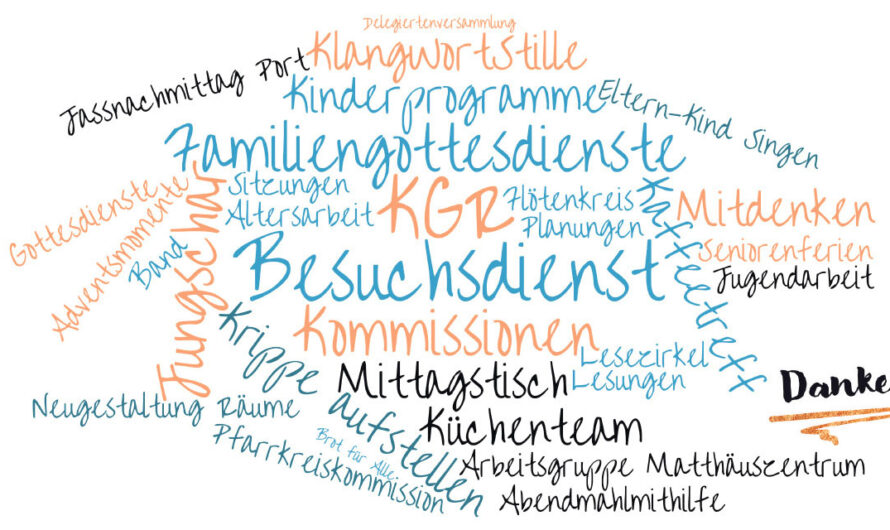 Delegiertenversammlung
Klangwortstille
Jassnachmittag Port
Kinderprogramme
Eltern-Kind Singen
Familiengottesdienste
Gottesdienste
Adventsmomente
Band
Jungschar
Sitzungen
Altersarbeit
KGR
Flötenkreis
Planungen
Kaffeetreff
Mitdenken
Seniorenferien
Jugendarbeit
Besuchsdienst
Kommissionen
Krippe
aufstellen
Mittagstisch
Lesezirkel
Lesungen
Danke
Neugestaltung Räume
Küchenteam
Pfarrkreiskommission
Brot für Alle
Arbeitsgruppe Matthäuszentrum
Abendmahlmithilfe